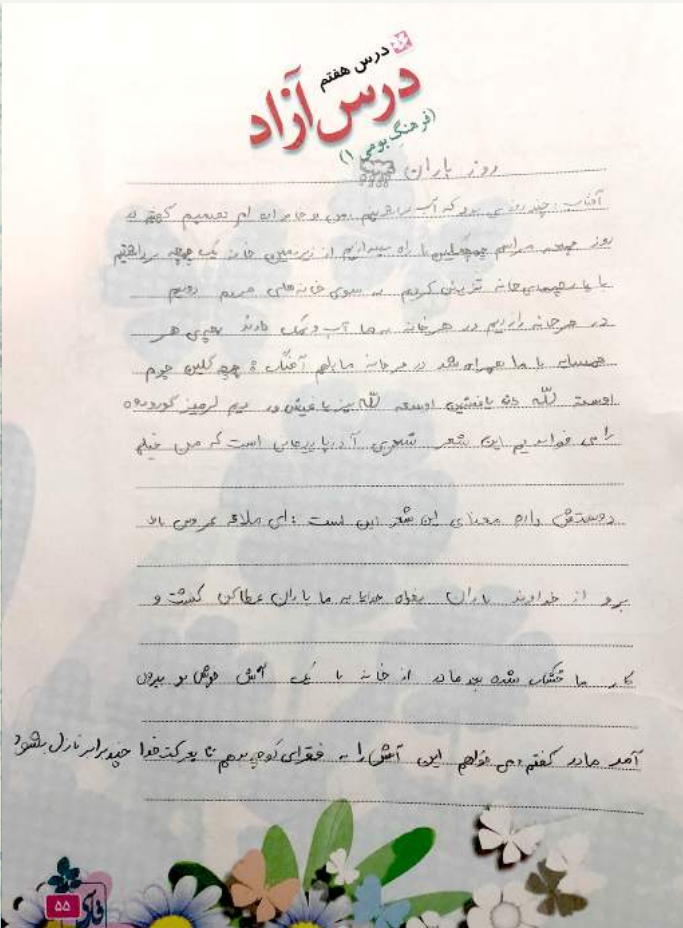 درس هفتم
درس آزاد
(فرهنگ بومی ۱)
روز باران
آفتاب: چند روزی بود که آب نداشتیم من و خاله ام تصمیم گرفتیم
روز جمعه مراسم را راه بیندازیم از زیرزمین خانه یک چوب برداشتیم
با پارچه تزیین کردیم به سوی خانه های مردم رفتیم
در هر خانه را زدیم در هر خانه به ما آب و نمک دادند
همسایه با ما همراه شد در هر خانه ما با آهنگ چمچه گلین چوم
اوسته لله
را می خواندیم این شعر شعری آذربایجانی است که من خیلی
دوستش دارم معنای این شعر این است: ای ملاقه عروس بالا
برو از خداوند باران بخواه خدایا به ما باران عطا کن کشت و
کار ما خشک شده بعد مادر از خانه با یک آش خوش بو بیرون
آمد مادر گفتم می خواهم این آش را به فقرای کوچه بدهم تا برکت خدا چند برابر نازل بشود
فارسی
۵۵